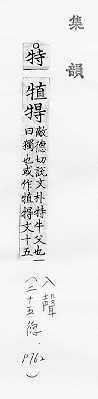 集韻
特 犆㹍
敵德切說文朴特牛父也一
曰獨也或作犆㹍文十五
入聲
(二十五德. P762)